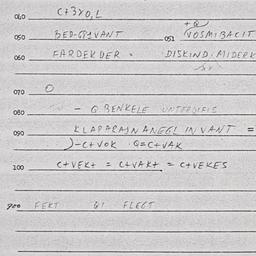 040 C+3Y0,L
+Q
050 BED-GQ1VANT 051 VOSMIBACIT
060 FARDEKDER - DISKIND:MIDERK
070 O
080 - Q BENKELE
090 KLAPARAJNANEGL IN VANT =
)-C+VOK Q=C+VAK
100 C+VEK+ = C+VAK+ = C+VEKES
900 FEKT Q1 FLEGT